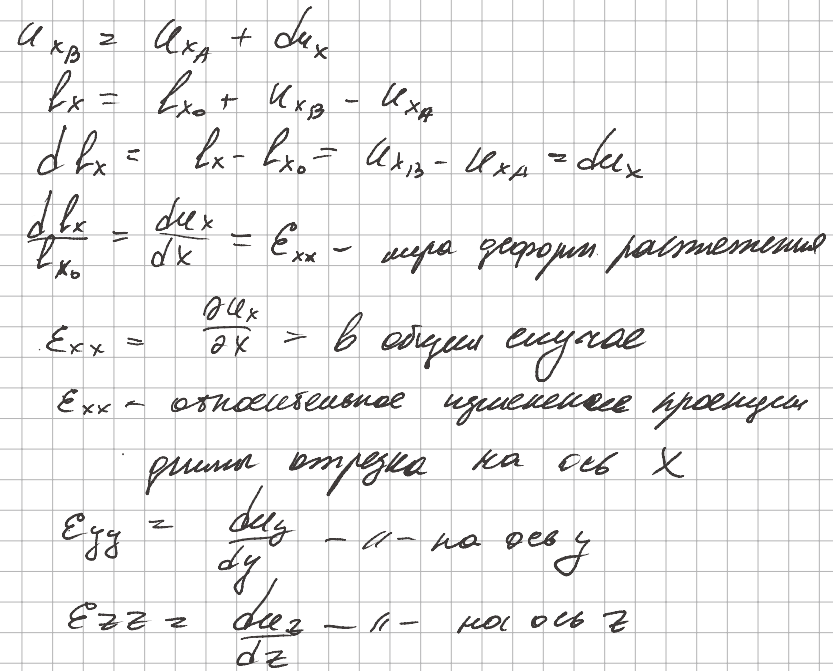 u_{x_B} = u_{x_A} + du_x
l_x = l_{x_0} + u_{x_B} - u_{x_A}
dl_x = l_x - l_{x_0} = u_{x_B} - u_{x_A} = du_x
\frac{dl_x}{l_{x_0}} = \frac{du_x}{dx} = ε_{xx} - мера деформ растяжения
ε_{xx} = \frac{∂u_x}{∂x} - в общем случае
ε_{xx} - относительное изменение проекции
длины отрезка на ось X
ε_{yy} = \frac{du_y}{dy} - // - на ось y
ε_{zz} = \frac{du_z}{dz} - // - на ось z